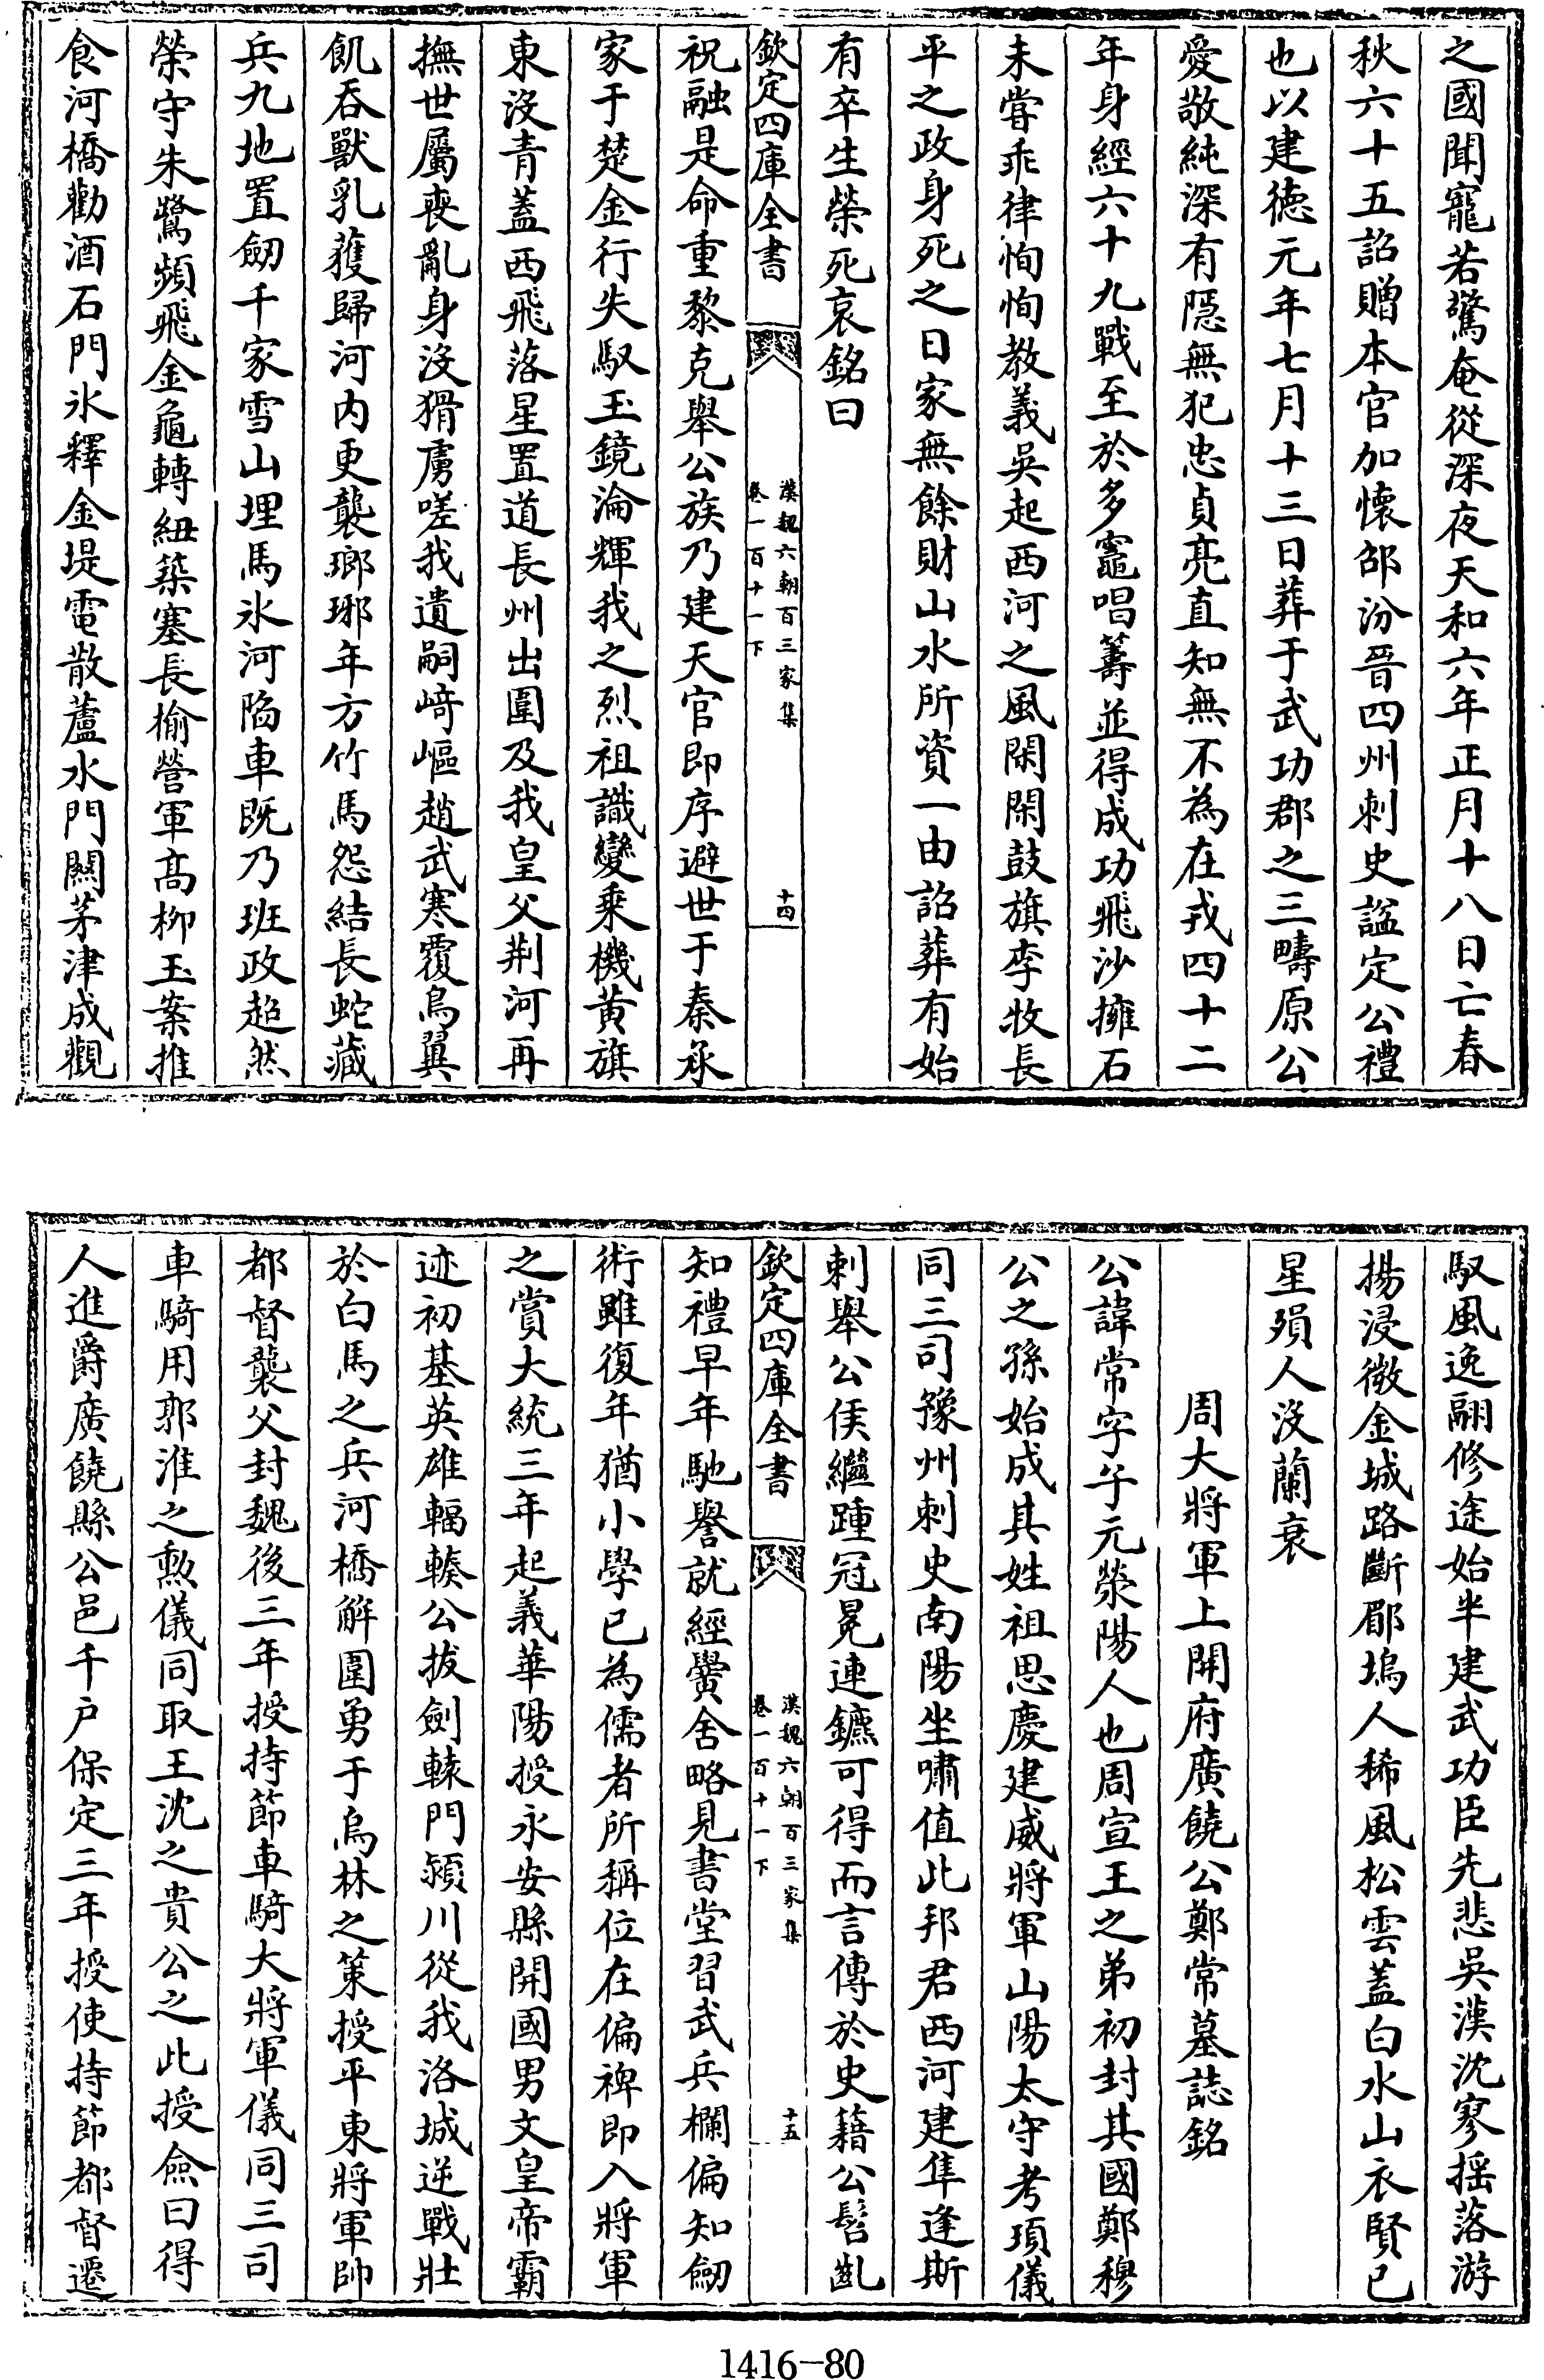 之國聞寵若驚奄從深夜天和六年正月十八日亡春
秋六十五詔贈本官加懷邵汾晉四州刺史諡定公禮
也以建德元年七月十三日葬于武功郡之三疇原公
愛敬純深有隱無犯忠貞亮直知無不為在戎四十二
年身經六十九戰至於多竈唱籌並得成功飛沙擁石
未嘗乖律恂恂教義吳起西河之風閑閑鼓旗李牧長
平之政身死之日家無餘財山水所資一由詔葬有始
有卒生榮死哀銘曰
欽定四庫全書
漢魏六朝百三家集
卷一百十一下
十四
祝融是命重黎克舉公族乃建天官即序避世于秦承
家于楚金行失馭玉鏡淪輝我之烈祖識變乗機黄旗
東没青蓋西飛落星置道長州出圍及我皇父荆河再
撫世屬喪亂身没猾虜嗟我遺嗣﨑嶇趙武寒覆鳥翼
飢吞獸乳蒦歸河内更襲瑯琊年方竹馬怨結長蛇藏
兵九地置劒千家雪山埋馬氷河陷車既乃班政超然
榮守朱鷺頻飛金龜轉紐築塞長榆營軍髙栁玉案推
食河橋勸酒石門氷釋金堤電散蘆水門闗茅津成觀
馭風逸翮修途始半建武功臣先悲吳漢沈寥揺落游
揚浸微金城路斷郿塢人稀風松雲蓋白水山衣賢已
星殞人没蘭衰
周大將軍上開府廣饒公鄭常墓誌銘
公諱常字子元滎陽人也周宣王之弟初封其國鄭穆
公之孫始成其姓祖思慶建威將軍山陽太守考頊儀
同三司豫州刺史南陽坐嘯值此邦君西河建隼逢斯
刺舉公侯繼踵冠冕連鑣可得而言傳於史籍公髫齓
欽定四庫全書
漢魏六朝百三家集
卷一百十一下
十五
知禮早年馳譽就經黌舍略見書堂習武兵欄偏知劒
術雖復年猶小學已為儒者所稱位在偏裨即入將軍
之賞大統三年起義華陽授永安縣開國男文皇帝霸
迹初基英雄輻輳公拔劍轅門潁川從我洛城逆戰壯
於白馬之兵河橋解圍勇于烏林之策授平東將軍帥
都督襲父封魏後三年授持節車騎大將軍儀同三司
車騎用郭淮之勲儀同取王沈之貴公之此授僉曰得
人進爵廣饒縣公邑千戸保定三年授使持節都督遷
1416-80